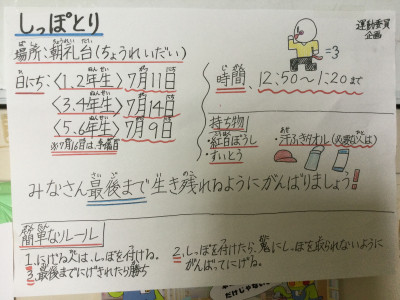 しっぽとり
運動委員
企画
場所：朝礼台(ちょうれいだい)
=3
日にち：〈1.2年生〉7月11日
〈3.4年生〉7月14日
〈5.6年生〉7月9日
※7月16日は、予備日
時間、12:50〜1:20まで
持ち物
・紅白ぼうし
・すいとう
・汗ふきタオル(必要な人は)
みなさん最後まで生き残れるようにがんばりましょう!
簡単なルール
1.にげる人は、しっぽを付ける。
2.しっぽを付けたら、鬼にしっぽを取られないように
がんばってにげる。
3.最後までにげきれたら勝ち